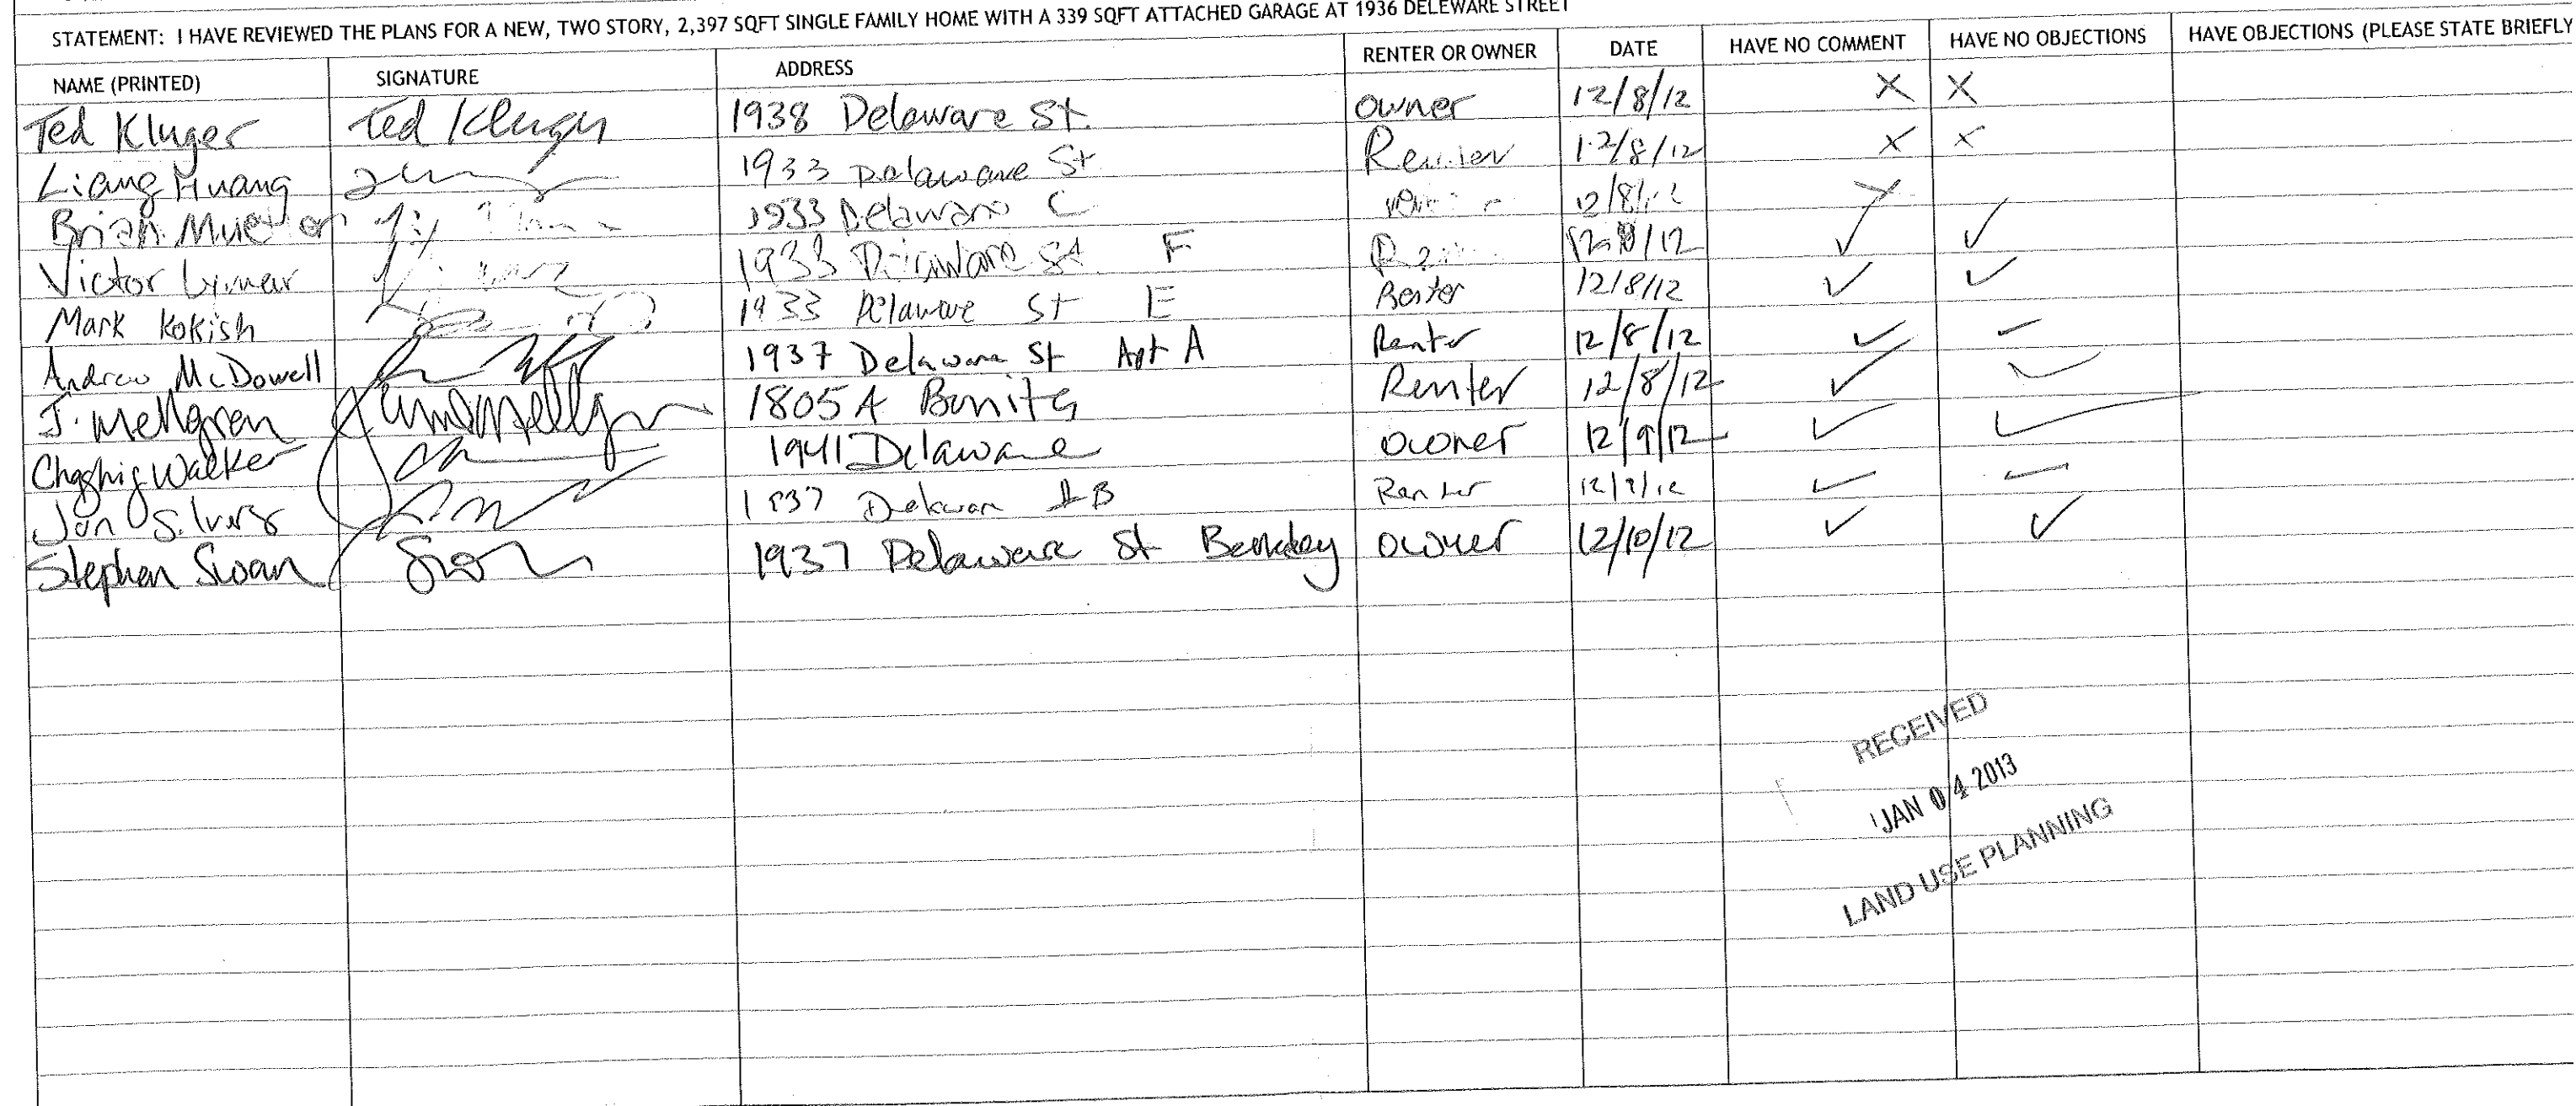 STATEMENT: I HAVE REVIEWED THE PLANS FOR A NEW, TWO STORY, 2,397 SQFT SINGLE FAMILY HOME WITH A 339 SQFT ATTACHED GARAGE AT 1936 DELEWARE STREET
NAME (PRINTED) SIGNATURE ADDRESS RENTER OR OWNER DATE HAVE NO COMMENT HAVE NO OBJECTIONS HAVE OBJECTIONS (PLEASE STATE BRIEFLY
Ted Kluger Ted Kluger 1938 Delaware St. owner 12/8/12 X X
Liang Huang 1933 Delaware St Renter 12/8/12 X X
Brian 1933 Delaware C 12/8/12 X
Victor 1933 Delaware St F 12/8/12 ✓ ✓
Mark Kokish 1933 Delaware St E Renter 12/8/12 ✓ ✓
Andrew McDowell 1937 Delaware St Apt A Renter 12/8/12 ✓ ✓
J. Mellgren 1805 A Bonita Renter 12/8/12 ✓ ✓
Walker 1941 Delaware owner 12/9/12 ✓ ✓
Jon Silvers 1937 Delaware B Renter 12/9/12 ✓ ✓
Stephen Swan Swan 1937 Delaware St Berkeley owner 12/10/12 ✓ ✓
RECEIVED
JAN 04 2013
LAND USE PLANNING